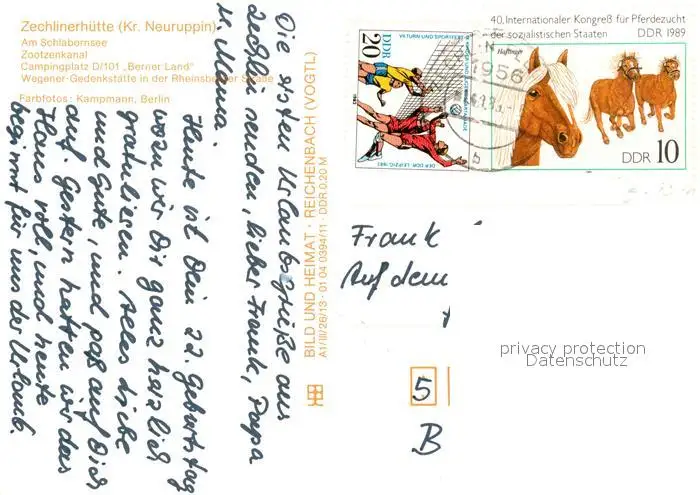 Zechlinerhütte (Kr. Neuruppin)
Am Schlabornsee
Zootzenkanal
Campingplatz D/101 „Berner Land"
Wegener-Gedenkstätte in der Rheinsberger Straße
Farbfotos: Kampmann, Berlin
Die ersten Urlaubsgrüße aus
senden, lieber Frank, Papa
u. Mama.
Heute ist Dein 22. Geburtstag
wozu wir Dir ganz herzlich
gratulieren. Alles Liebe
und Gute, und paß auf Dich
auf. Gestern hatten wir das
Haus voll, und heute
beginnt für uns der Urlaub.
BILD UND HEIMAT · REICHENBACH (VOGTL)
A1/III/26/13 · 01 04 0394/11 · DDR 0,20 M
20
DDR
VII. TURN UND SPORTFEST
DER DDR LEIPZIG 1983
1956
40. Internationaler Kongreß für Pferdezucht
der sozialistischen Staaten
DDR 1989
Haflinger
DDR 10
Frank
Auf dem
5
B
privacy protection
Datenschutz